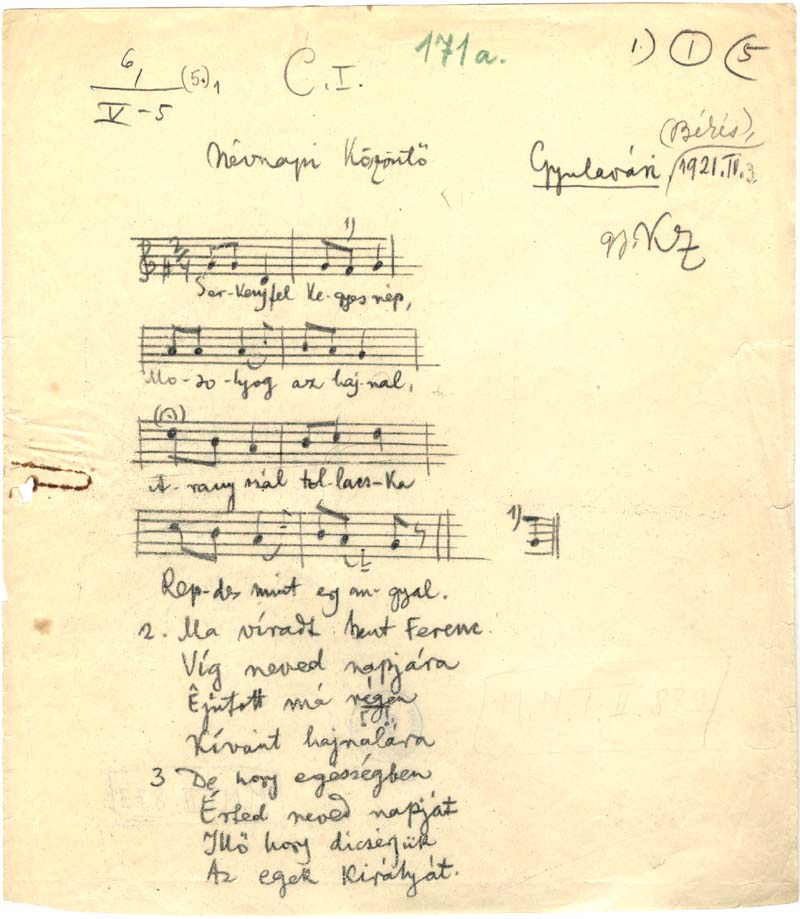 6, (5.)1 C.I. 171a. 1.) I (5
V-5
Névnapi Köszöntő Gyulavári, (Békés), 1921.IV.3.
gy. KZ
1)
Ser-kenj fel ke-gyes nép,
Mo-so-lyog az haj-nal,
A-rany szál tol-lacs-ka
1)
Rep-des mint egy an-gyal.
2. Ma viradt Szent Ferenc
Víg neved napjára
Éjutott má régen
Kívánt hajnalára
3 De hogy egességben
Érted neved napját
Illő hogy dicsérjük
Az egek Királyát.